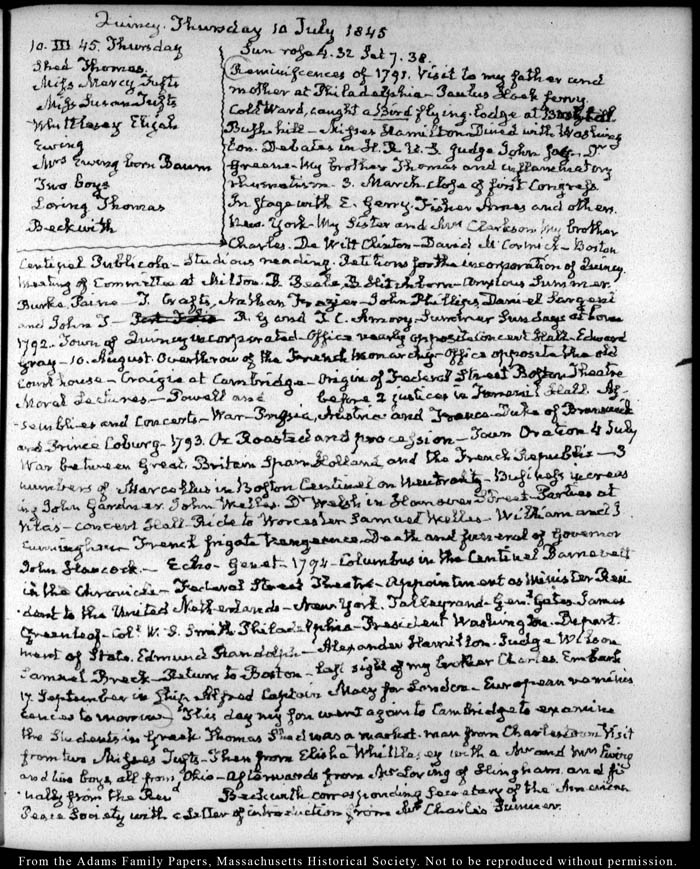 Quincy. Thursday 10 July 1845
10. III 45. Thursday
Shed Thomas.
Miss Marcy Tufts
Miss Susan Tufts
Whittlesey Elijah
Ewing
Mrs Ewing born Baum
Two boys
Loring Thomas
Beckwith
Sun rose 4.32 Set 7.38.
Reminiscences of 1791. Visit to my father and
mother at Philadelphia - Paulus Hook ferry.
Coll Ward, caught a Bird flying. Lodge at
Bush hill - Misses Hamilton. Dined with Washing
ton. Debates in H. R. U. S. Judge John Jay. Dr
Greene - My brother Thomas and inflammatory
rheumatism. 3. March close of first Congress.
In Stage with E. Gerry. Fisher Ames and others.
New York - My Sister and Mrs Clarkson My brother
Charles. De Witt Clinton - David McCormick - Boston
Centinel Publicola - Studious reading. Petitions for the incorporation of Quincy.
Meeting of Committee at Milton. B. Beale, B. Hitchborn - Anxious Summer.
Burke, Paine - T. Crafts, Nathan Frazier - John Phillips, Daniel Sargent
and John T - R. G and T. C. Amory. Summer Sundays at home
1792. Town of Quincy incorporated - Office nearly opposite Concert Hall - Edward
Gray - 10. August. Overthrow of the French Monarchy - Office opposite the old
Court house - Craigie at Cambridge - Origin of Federal Street Boston Theatre
Moral Lectures - Powell and before 2 justices in Faneuil Hall. As-
semblies and Concerts - War - Prussia, Austria and France - Duke of Brunswick
and Prince Coburg - 1793. Ox Roasted and procession - Town Oration 4 July
War between Great Britain Spain Holland, and the French Republic - 3
numbers of Marcellus in Boston Centinel on Neutrality - Business increas
ing John Gardner. John Welles. Dr Welsh in Hanover Street - Parties at
Vila's - Concert Hall - Ride to Worcester Samuel Welles - William and J
Cunningham - French frigate Vengeance. Death and funeral of Governor
John Hancock. - Echo - Genet - 1794 - Columbus in the Centinel Barneveld
in the Chronicle - Federal Street Theatre - Appointment as Minister Resi
dent to the United Netherlands - New York. Talleyrand - Genl Gates. James
Greenleaf - Coll W. S. Smith Philadelphia - President Washington. Depart
ment of State. Edmund Randolph - Alexander Hamilton. Judge Wilson
Samuel Breck - Return to Boston - last sight of my brother Charles. Embark
17. September in Ship Alfred Captain Macy for London - European reminis
cences to morrow. This day my son went again to Cambridge to examine
the Students in Greek Thomas Shed was a market-man from Charlestown Visit
from two Misses Tufts - Then from Elisha Whittlesey with a Mr and Mrs Ewing
and two boys, all from Ohio - Afterwards from Mr Loring of Hingham. and fi
nally from the Revd Beckwith corresponding Secretary of the American
Peace Society with a Letter of introduction from Mr Charles Sumner.
From the Adams Family Papers, Massachusetts Historical Society. Not to be reproduced without permission.